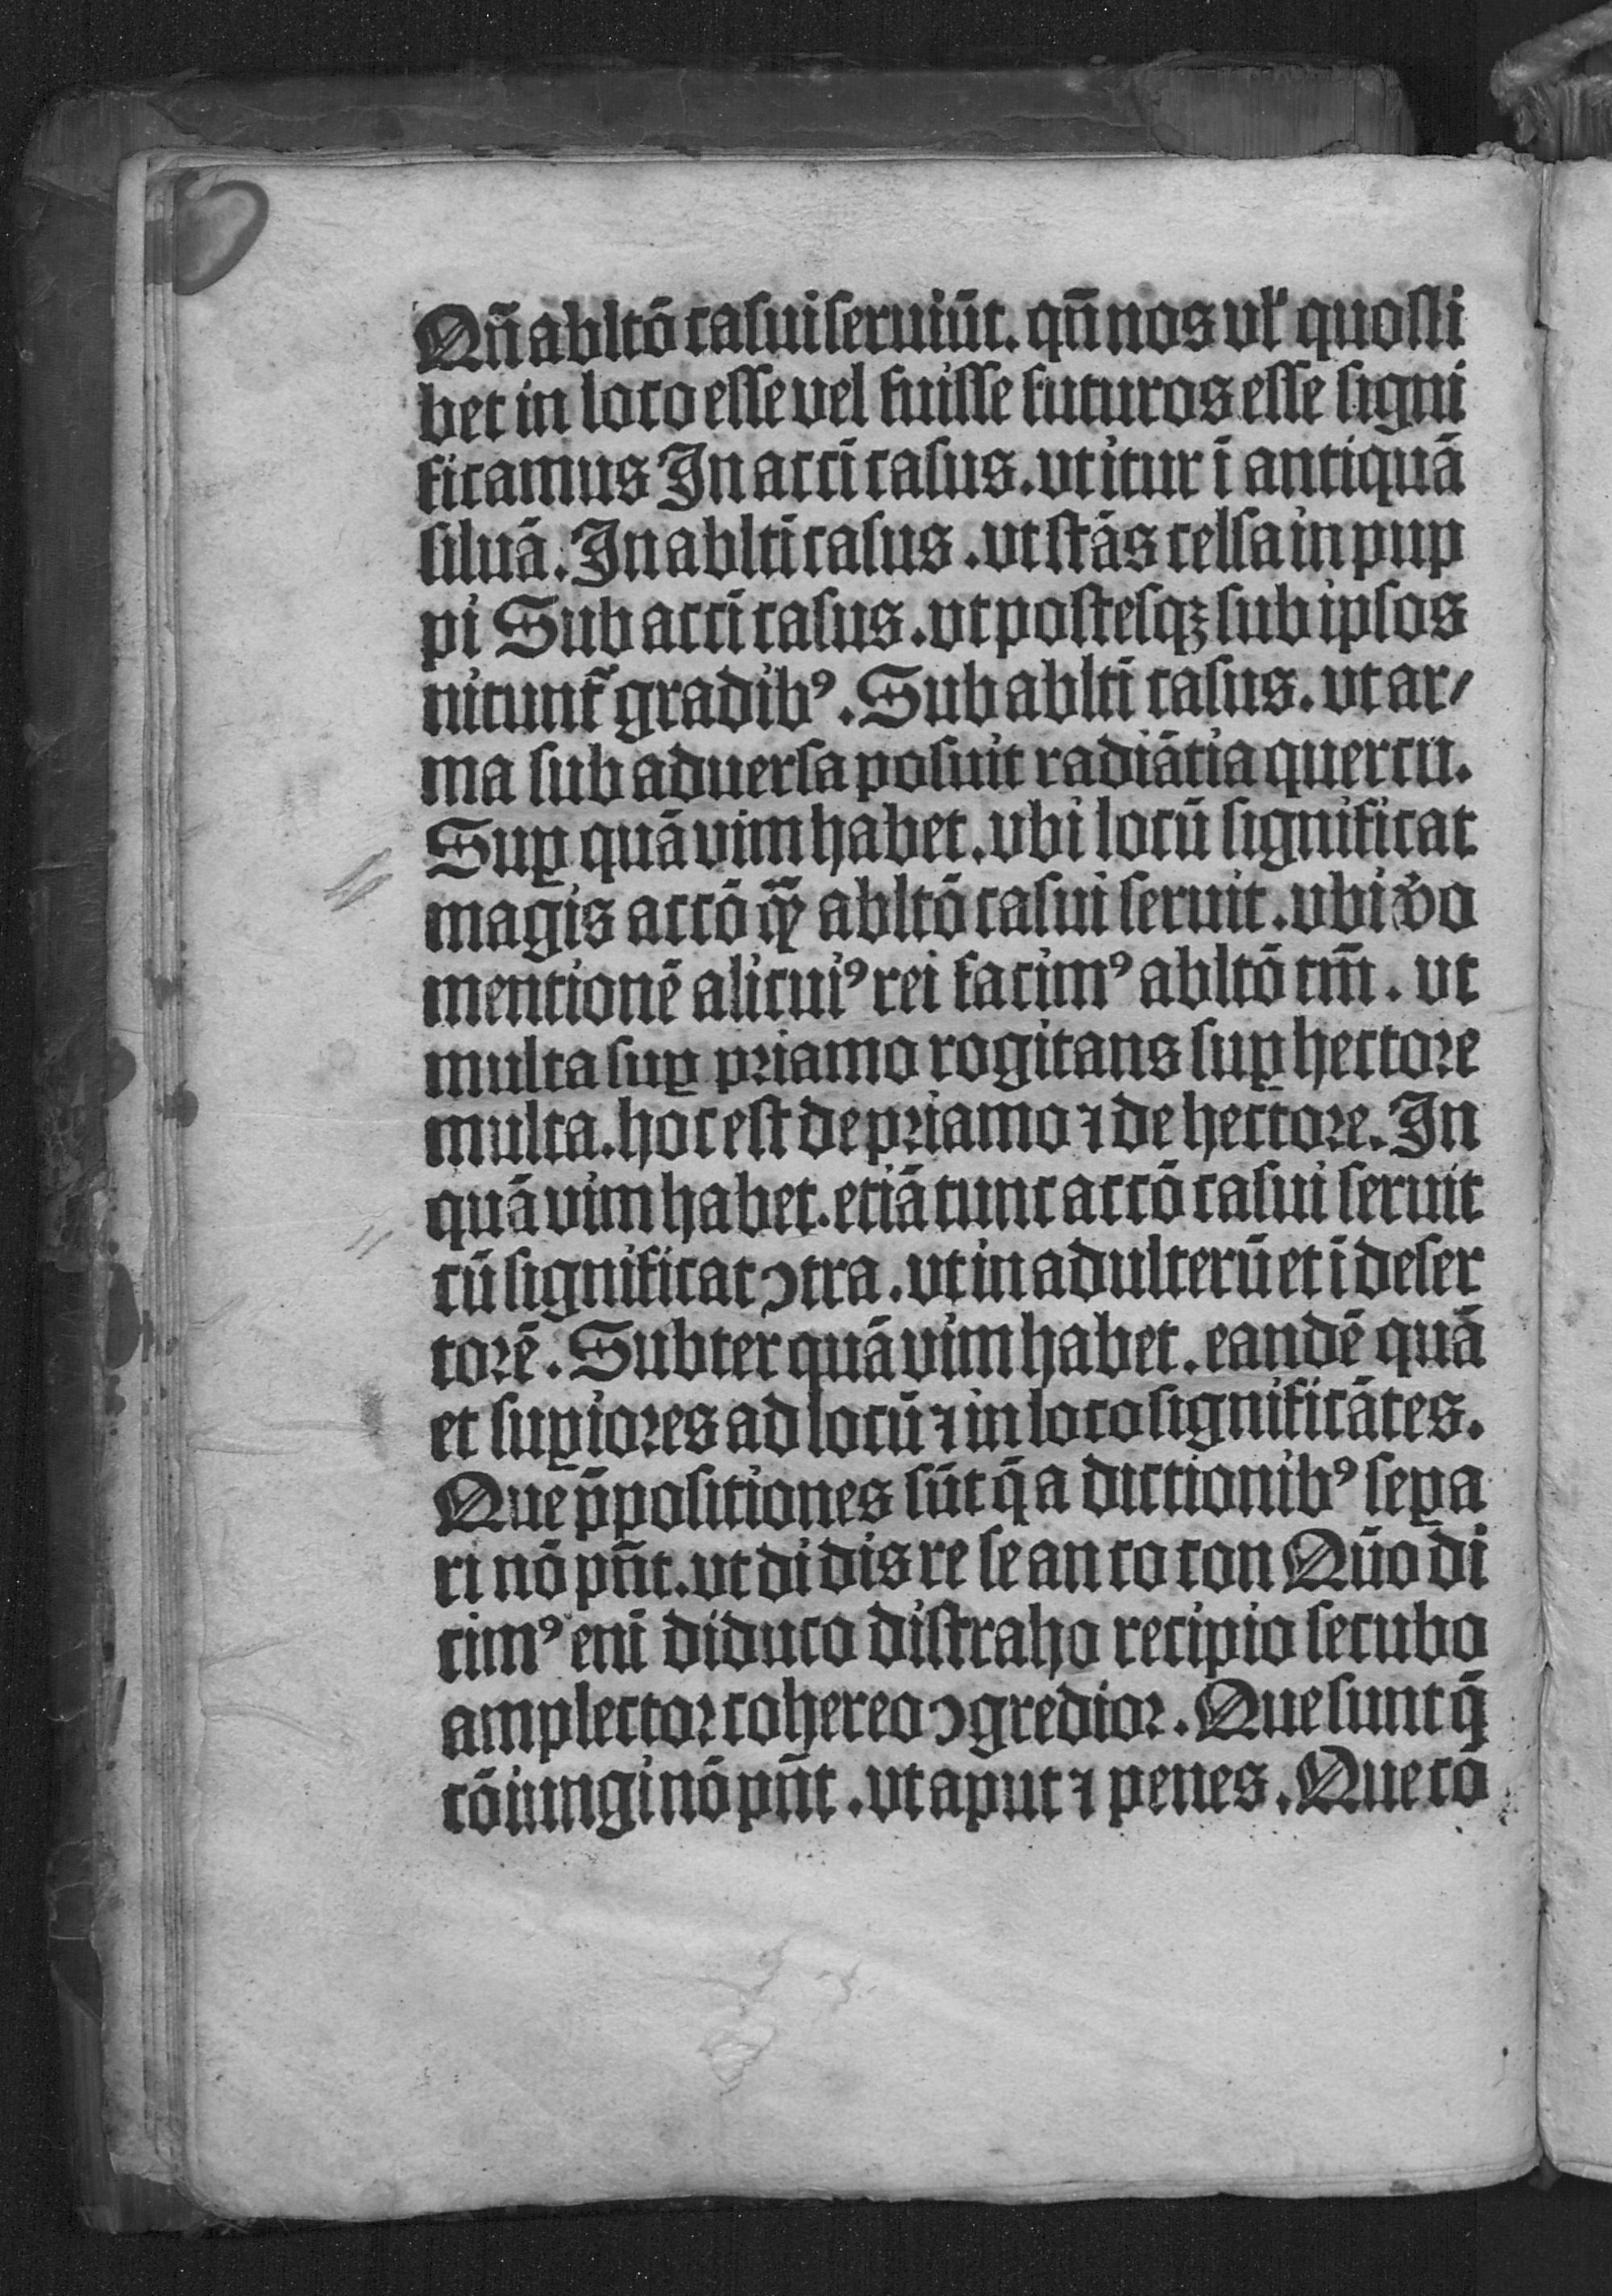 Qn̄ abltō casui seruiūt. qn̄ nos vl' quosli
bet in loco esse vel fuisse futuros esse signi
ficamus In accī casus. vt itur ī antiquā
siluā. In abltī casus. vt stās celsa in pup
pi Sub accī casus. vt postesqꝫ sub ipsos
nitunt᷑ gradibꝰ. Sub abltī casus. vt ar/
ma sub aduersa posuit radiātia quercu.
Suꝑ quā vim habet. vbi locū significat
magis accō qꝫ̄ abltō casui seruit. vbi v̓o
mentionē alicuiꝰ rei facimꝰ abltō tm̄. vt
multa suꝑ priamo rogitans suꝑ hectore
multa. hoc est de priamo ⁊ de hectore. In
quā vim habet. etiā tunc accō casui seruit
cū significat ꝯtra. vt in adulterū et ī deser
torē. Subter quā vim habet. eandē quā
et suꝑiores ad locū ⁊ in loco significātes.
Que p̄positiones sūt q̄ a dictionibꝰ seꝑa
ri nō pn̄t. vt di dis re se an co con Qūo di
cimꝰ enī diduco distraho recipio secubo
amplector cohereo ꝯgredior. Que sunt q̄
cōiungi nō pn̄t. vt aput ⁊ penes. Que cō